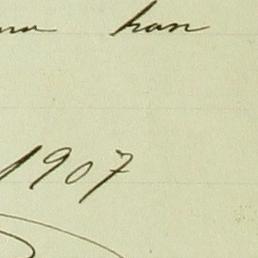 han
1907